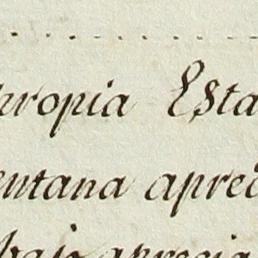 propia Esta
entana apreci
bajo aprecia